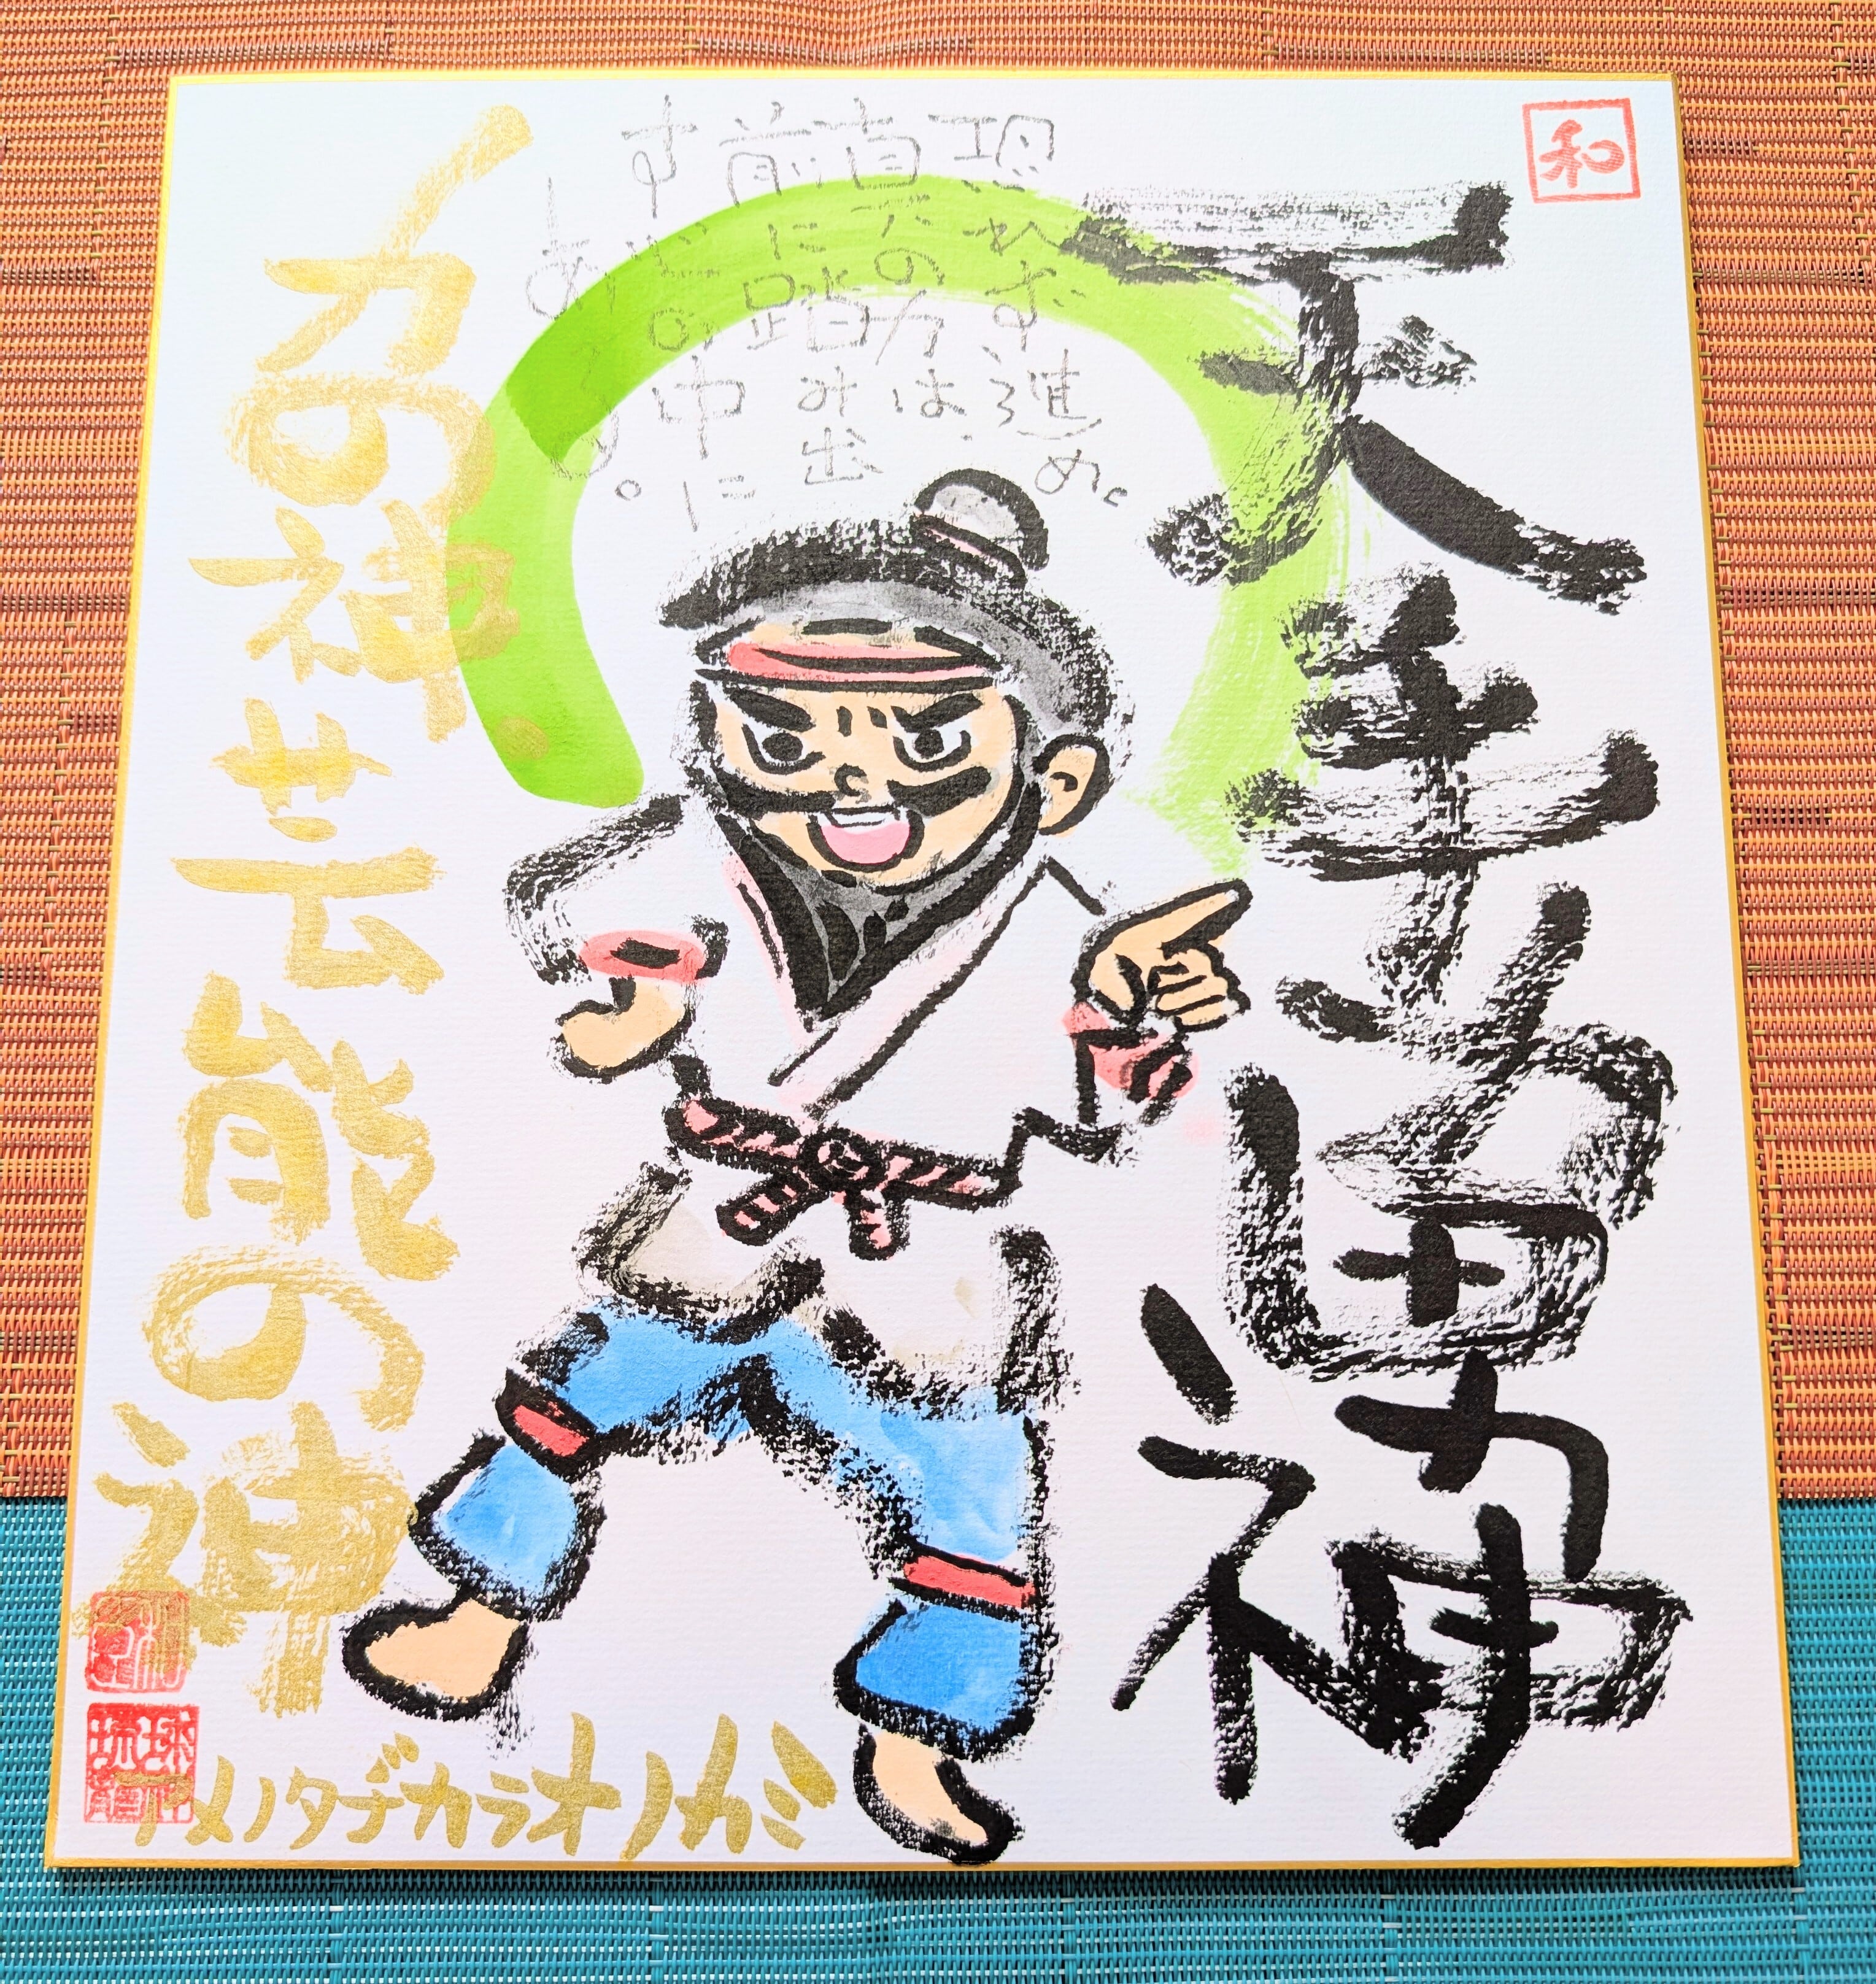 和
天手力男神
恐れず進め。
真の力は、
前に踏み出
す心の中に
ある。
力の神
芸能の神
アメノタヂカラオノカミ